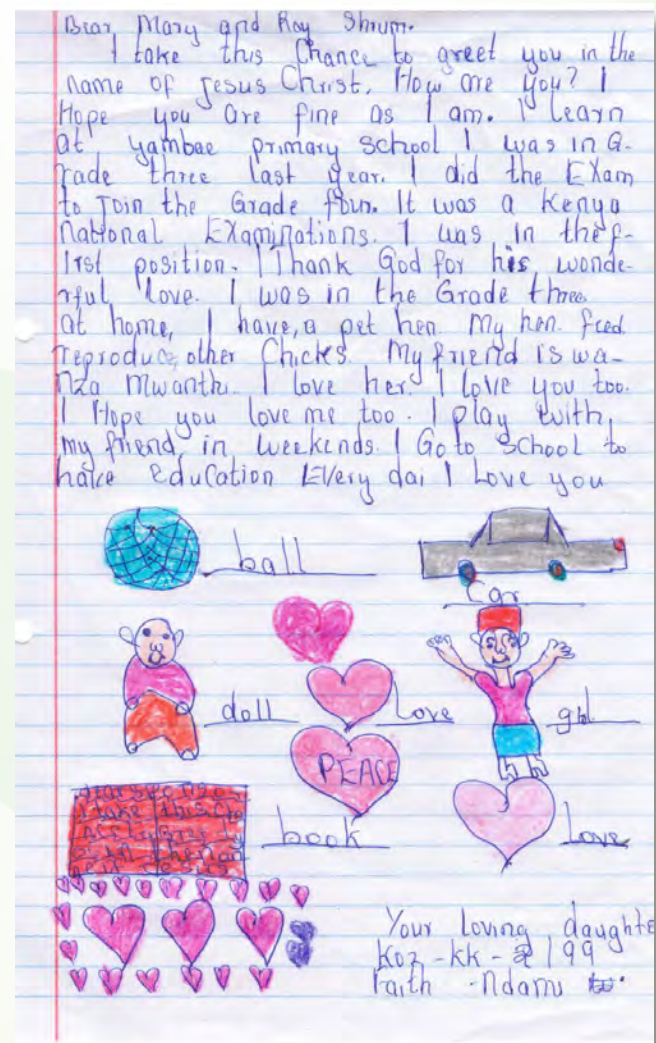 Dear Mary and Ray Shrum.
I take this Chance to greet you in the
name of Jesus Christ, How are you? I
Hope you are fine as I am. I learn
at yambae primary school I was in G-
rade three last year. I did the EXam
to Join the Grade four. It was a Kenya
National EXaminations. I was in the f-
irst position. I Thank God for his wonde-
rful love. I was in the Grade three.
at home, I have, a pet hen. My hen. feed
reproduce other Chicks. My friend is wa-
nza Mwanth. I love her. I love you too.
I Hope you love me too. I play with
my friend in weekends. I Go to school to
have education Every dai I Love you
ball
Car
doll
Love
girl
PEACE
book
Love
Your Loving daughte
KOZ-KK-199
Faith -Ndanu